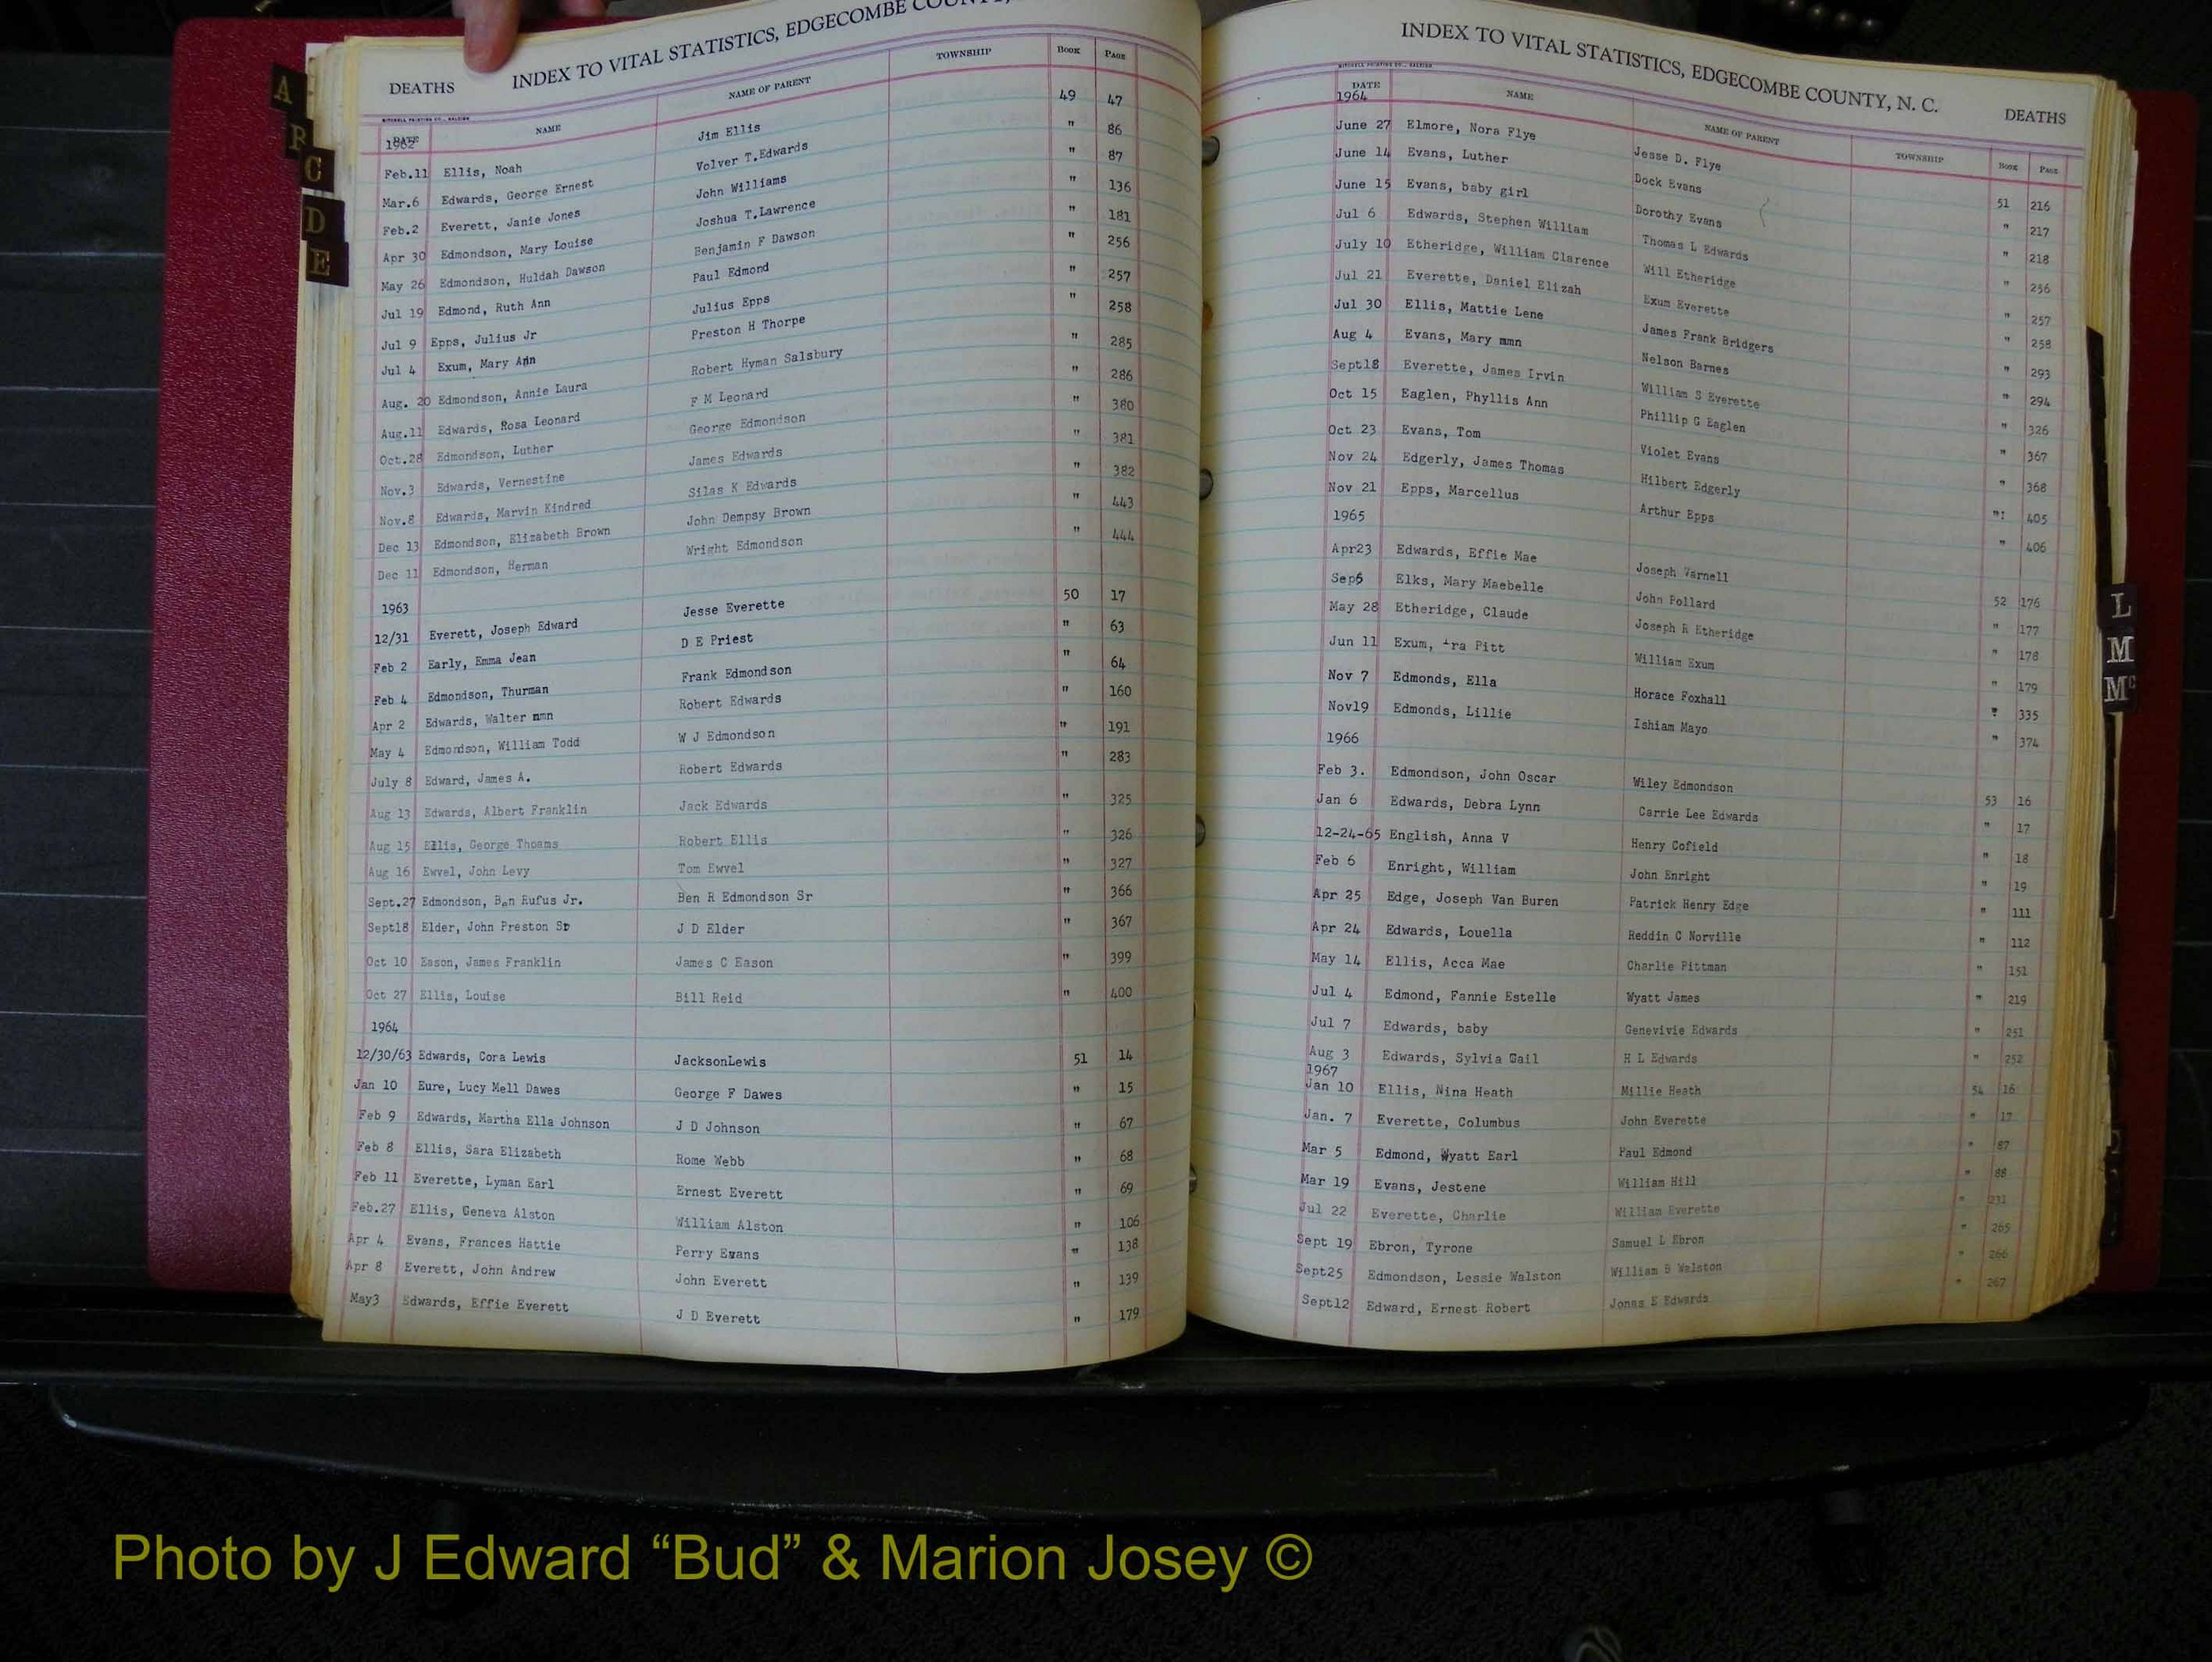 A
B
C
D
E
DEATHS INDEX TO VITAL STATISTICS, EDGECOMBE COUNTY,
MITCHELL PRINTING CO., RALEIGH
DATE NAME NAME OF PARENT TOWNSHIP BOOK PAGE
1962
Feb.11 Ellis, Noah Jim Ellis 49 47
Mar.6 Edwards, George Ernest Volver T.Edwards " 86
Feb.2 Everett, Janie Jones John Williams " 87
Apr 30 Edmondson, Mary Louise Joshua T.Lawrence " 136
May 26 Edmondson, Huldah Dawson Benjamin F Dawson " 181
Jul 19 Edmond, Ruth Ann Paul Edmond " 256
Jul 9 Epps, Julius Jr Julius Epps " 257
Jul 4 Exum, Mary Ann Preston H Thorpe " 258
Aug. 20 Edmondson, Annie Laura Robert Hyman Salsbury " 285
Aug.11 Edwards, Rosa Leonard F M Leonard " 286
Oct.28 Edmondson, Luther George Edmondson " 380
Nov.3 Edwards, Vernestine James Edwards " 381
Nov.8 Edwards, Marvin Kindred Silas K Edwards " 382
Dec 13 Edmondson, Elizabeth Brown John Dempsy Brown " 443
Dec 11 Edmondson, Herman Wright Edmondson " 444
1963
12/31 Everett, Joseph Edward Jesse Everette 50 17
Feb 2 Early, Emma Jean D E Priest " 63
Feb 4 Edmondson, Thurman Frank Edmondson " 64
Apr 2 Edwards, Walter nmn Robert Edwards " 160
May 4 Edmondson, William Todd W J Edmondson " 191
July 8 Edward, James A. Robert Edwards " 283
Aug 13 Edwards, Albert Franklin Jack Edwards " 325
Aug 15 Ellis, George Thoams Robert Ellis " 326
Aug 16 Ewvel, John Levy Tom Ewvel " 327
Sept.27 Edmondson, Ben Rufus Jr. Ben R Edmondson Sr " 366
Sept18 Elder, John Preston Sr J D Elder " 367
Oct 10 Eason, James Franklin James C Eason " 399
Oct 27 Ellis, Louise Bill Reid " 400
1964
12/30/63 Edwards, Cora Lewis JacksonLewis 51 14
Jan 10 Eure, Lucy Mell Dawes George F Dawes " 15
Feb 9 Edwards, Martha Ella Johnson J D Johnson " 67
Feb 8 Ellis, Sara Elizabeth Rome Webb " 68
Feb 11 Everette, Lyman Earl Ernest Everett " 69
Feb.27 Ellis, Geneva Alston William Alston " 106
Apr 4 Evans, Frances Hattie Perry Evans " 138
Apr 8 Everett, John Andrew John Everett " 139
May3 Edwards, Effie Everett J D Everett " 179
INDEX TO VITAL STATISTICS, EDGECOMBE COUNTY, N. C. DEATHS
MITCHELL PRINTING CO., RALEIGH
DATE NAME NAME OF PARENT TOWNSHIP BOOK PAGE
1964
June 27 Elmore, Nora Flye Jesse D. Flye 51 216
June 14 Evans, Luther Dock Evans " 217
June 15 Evans, baby girl Dorothy Evans " 218
Jul 6 Edwards, Stephen William Thomas L Edwards " 256
July 10 Etheridge, William Clarence Will Etheridge " 257
Jul 21 Everette, Daniel Elizah Exum Everette " 258
Jul 30 Ellis, Mattie Lene James Frank Bridgers " 293
Aug 4 Evans, Mary nmn Nelson Barnes " 294
Sept18 Everette, James Irvin William S Everette " 326
Oct 15 Eaglen, Phyllis Ann Phillip G Eaglen " 367
Oct 23 Evans, Tom Violet Evans " 368
Nov 24 Edgerly, James Thomas Hilbert Edgerly " 405
Nov 21 Epps, Marcellus Arthur Epps " 406
1965
Apr23 Edwards, Effie Mae Joseph Varnell 52 176
Sep5 Elks, Mary Maebelle John Pollard " 177
May 28 Etheridge, Claude Joseph R Etheridge " 178
Jun 11 Exum, Ira Pitt William Exum " 179
Nov 7 Edmonds, Ella Horace Foxhall " 335
Nov19 Edmonds, Lillie Ishiam Mayo " 374
1966
Feb 3. Edmondson, John Oscar Wiley Edmondson 53 16
Jan 6 Edwards, Debra Lynn Carrie Lee Edwards " 17
12-24-65 English, Anna V Henry Cofield " 18
Feb 6 Enright, William John Enright " 19
Apr 25 Edge, Joseph Van Buren Patrick Henry Edge " 111
Apr 24 Edwards, Louella Reddin C Norville " 112
May 14 Ellis, Acca Mae Charlie Pittman " 151
Jul 4 Edmond, Fannie Estelle Wyatt James " 219
Jul 7 Edwards, baby Genevivie Edwards " 251
Aug 3 Edwards, Sylvia Gail H L Edwards " 252
1967
Jan 10 Ellis, Nina Heath Millie Heath 54 16
Jan. 7 Everette, Columbus John Everette " 17
Mar 5 Edmond, Wyatt Earl Paul Edmond " 87
Mar 19 Evans, Jestene William Hill " 88
Jul 22 Everette, Charlie William Everette " 231
Sept 19 Ebron, Tyrone Samuel L Ebron " 265
Sept25 Edmondson, Lessie Walston William B Walston " 266
Sept12 Edward, Ernest Robert Jonas E Edwards " 267
L
M
Mc
Photo by J Edward “Bud” & Marion Josey ©